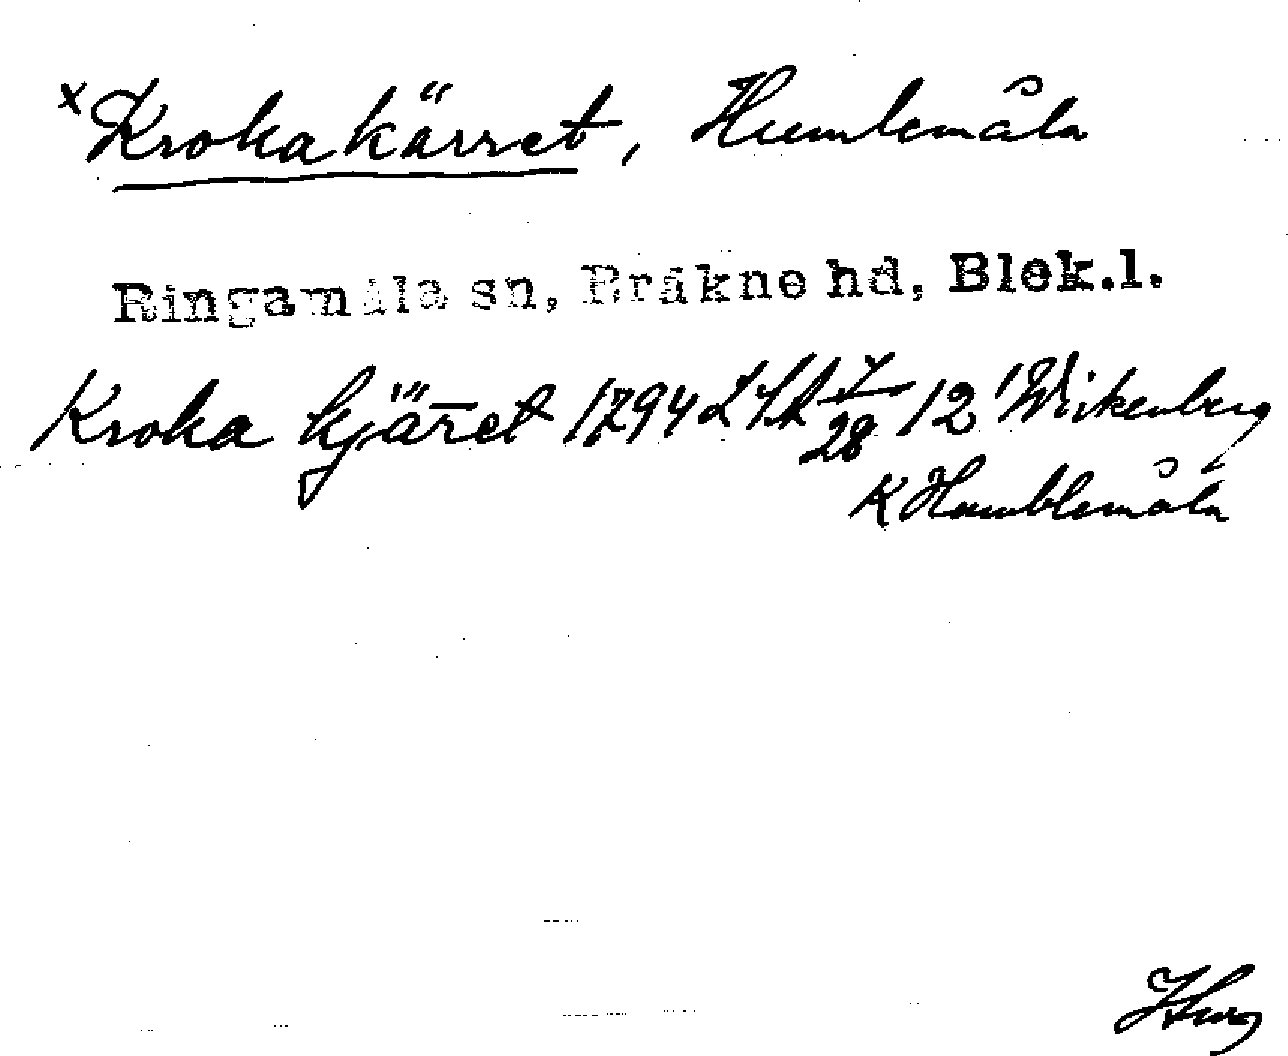 x Krokakärret, Humlemåla
Ringamåla sn, Bräkne hd, Blek.l.
Kroka kjär̄et 1794 7/28 12 Wickenberg
K Humblemåla